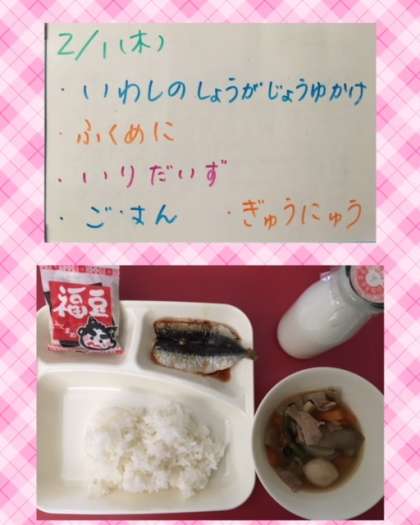 2/1(木)
・いわしのしょうがじょうゆかけ
・ふくめに
・いりだいず
・ごはん ・ぎゅうにゅう
福豆